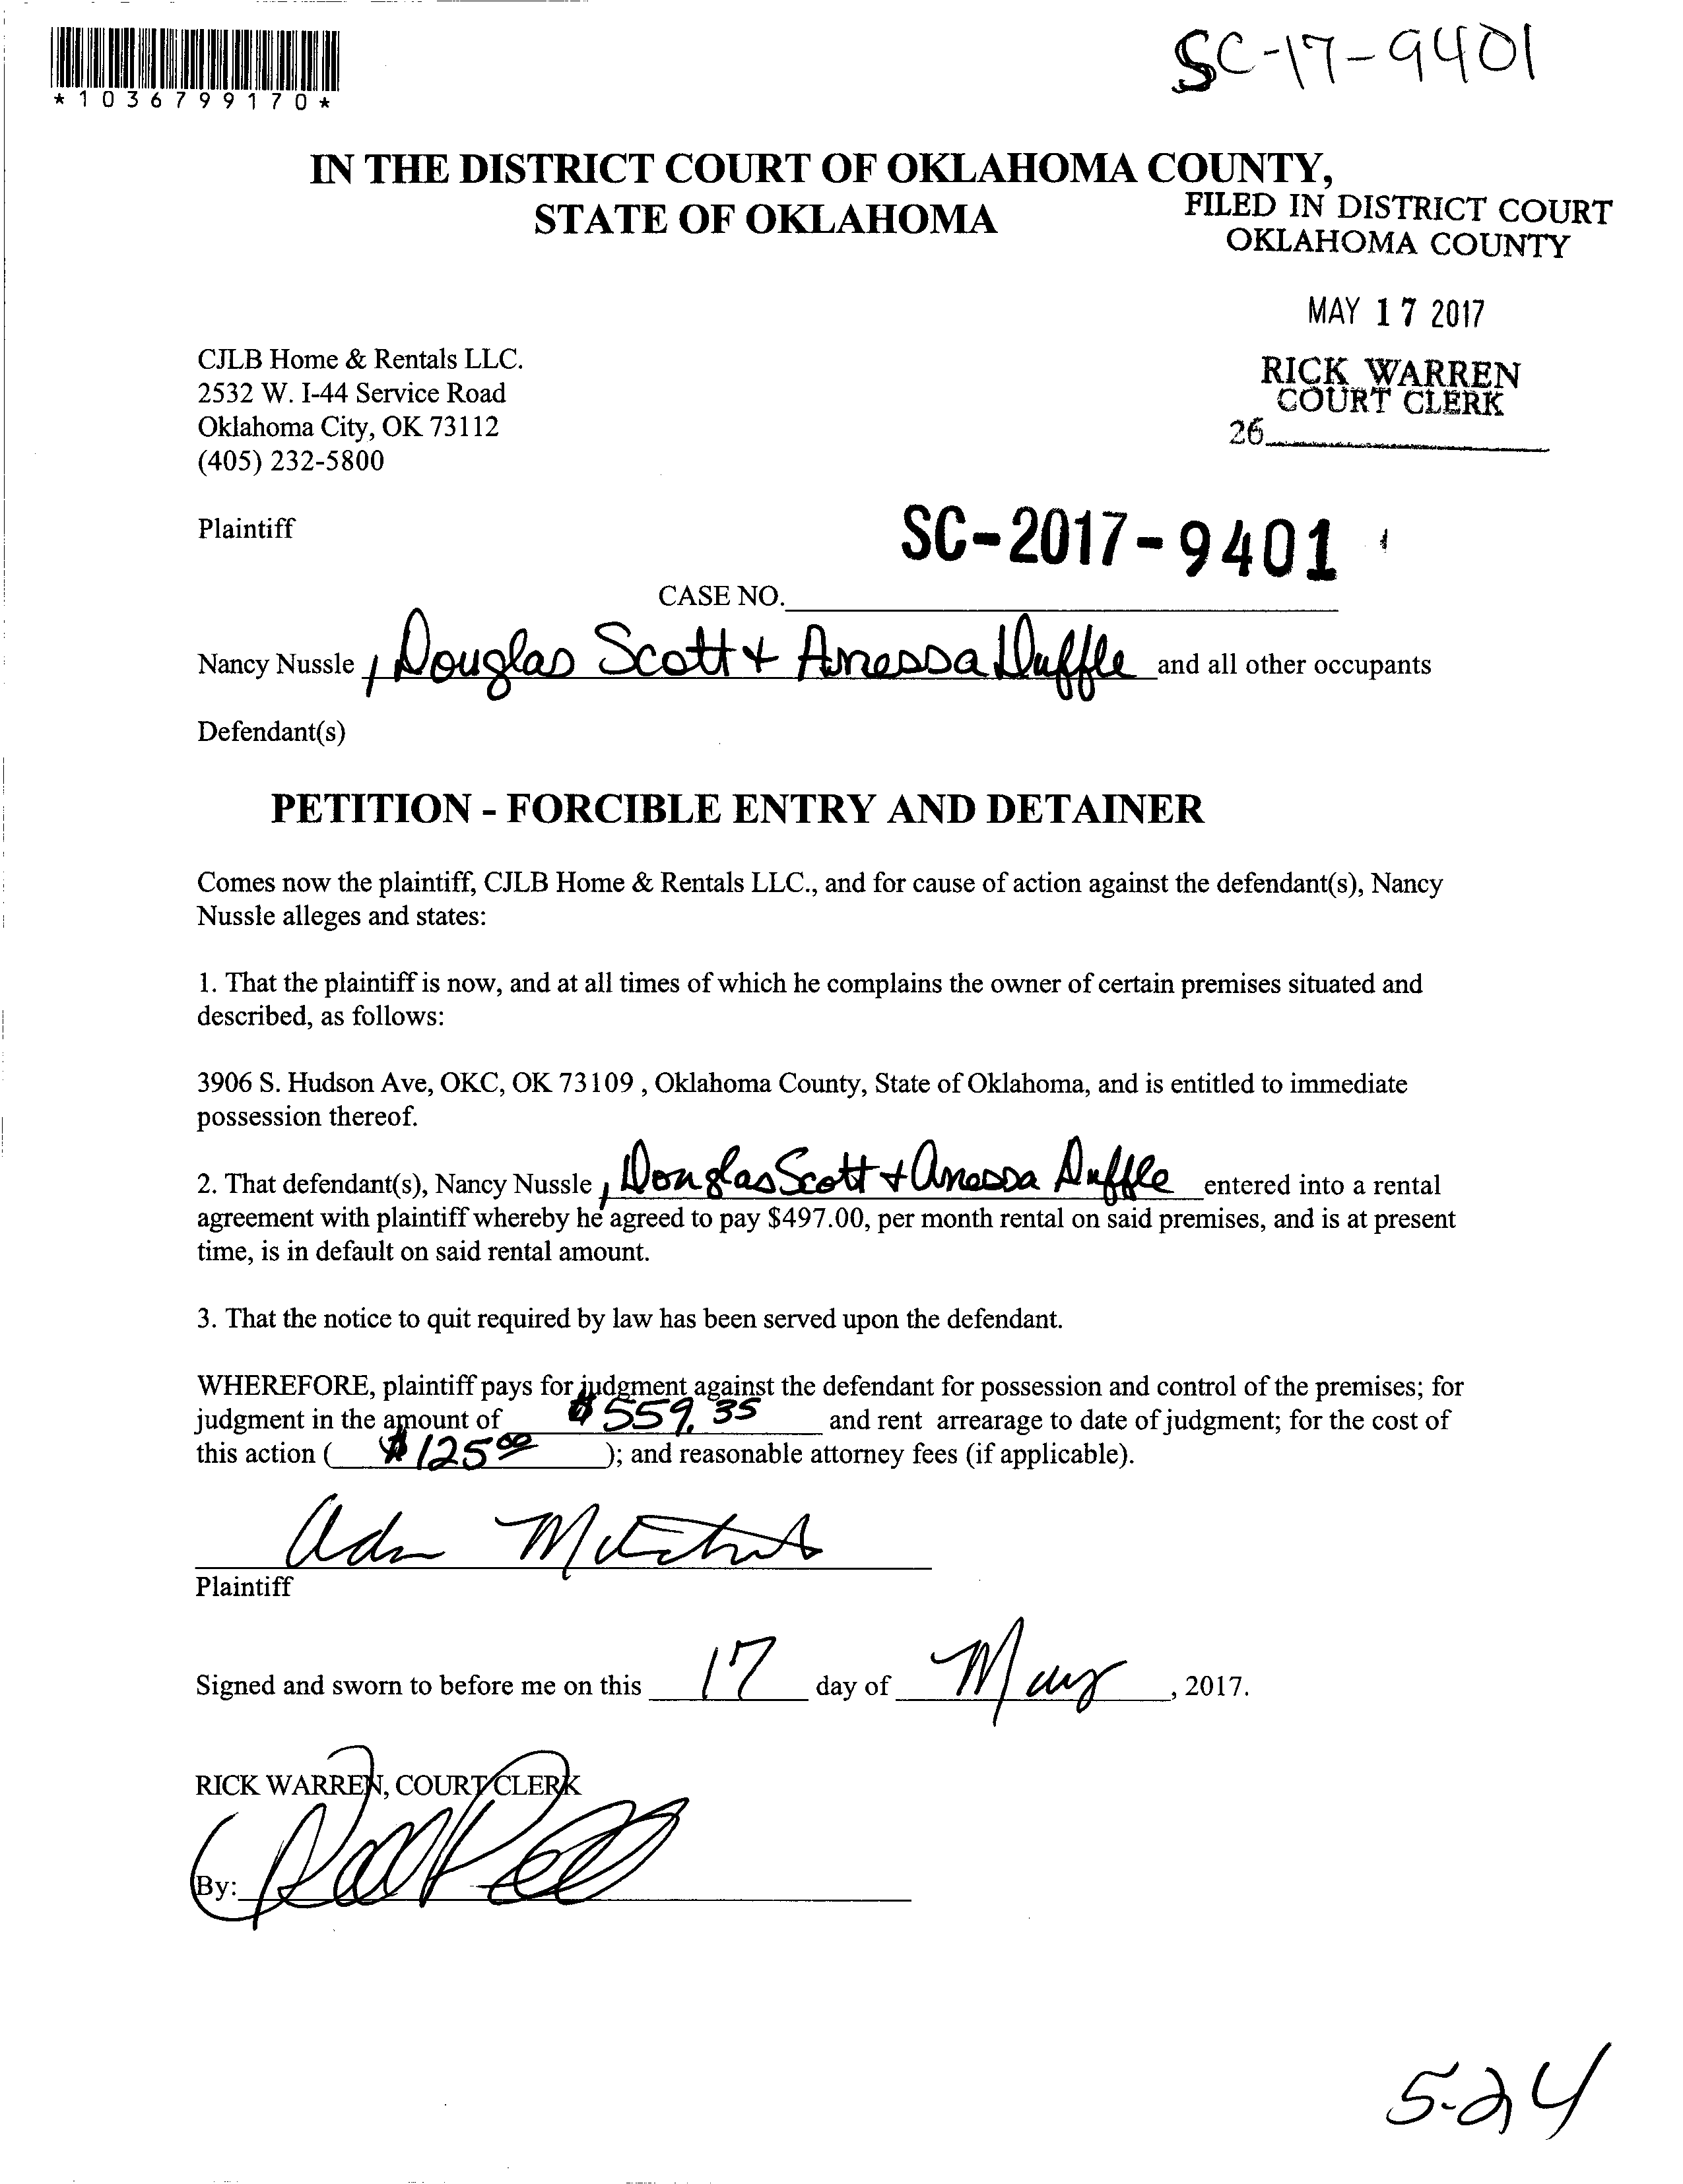 SC-17-9401
*1036799170*
IN THE DISTRICT COURT OF OKLAHOMA COUNTY,
STATE OF OKLAHOMA
FILED IN DISTRICT COURT
OKLAHOMA COUNTY
MAY 17 2017
RICK WARREN
COURT CLERK
26
CJLB Home & Rentals LLC.
2532 W. I-44 Service Road
Oklahoma City, OK 73112
(405) 232-5800
Plaintiff
SC-2017-9401
CASE NO.
Nancy Nussle, Douglas Scott + Anessa Duffle and all other occupants
Defendant(s)
PETITION - FORCIBLE ENTRY AND DETAINER
Comes now the plaintiff, CJLB Home & Rentals LLC., and for cause of action against the defendant(s), Nancy
Nussle alleges and states:
1. That the plaintiff is now, and at all times of which he complains the owner of certain premises situated and
described, as follows:
3906 S. Hudson Ave, OKC, OK 73109 , Oklahoma County, State of Oklahoma, and is entitled to immediate
possession thereof.
2. That defendant(s), Nancy Nussle, Douglas Scott + Anessa Duffle entered into a rental
agreement with plaintiff whereby he agreed to pay $497.00, per month rental on said premises, and is at present
time, is in default on said rental amount.
3. That the notice to quit required by law has been served upon the defendant.
WHEREFORE, plaintiff pays for judgment against the defendant for possession and control of the premises; for
judgment in the amount of $559.35 and rent arrearage to date of judgment; for the cost of
this action ( $125.00 ); and reasonable attorney fees (if applicable).
Plaintiff
Signed and sworn to before me on this 17 day of May, 2017.
RICK WARREN, COURT CLERK
By:
5-24